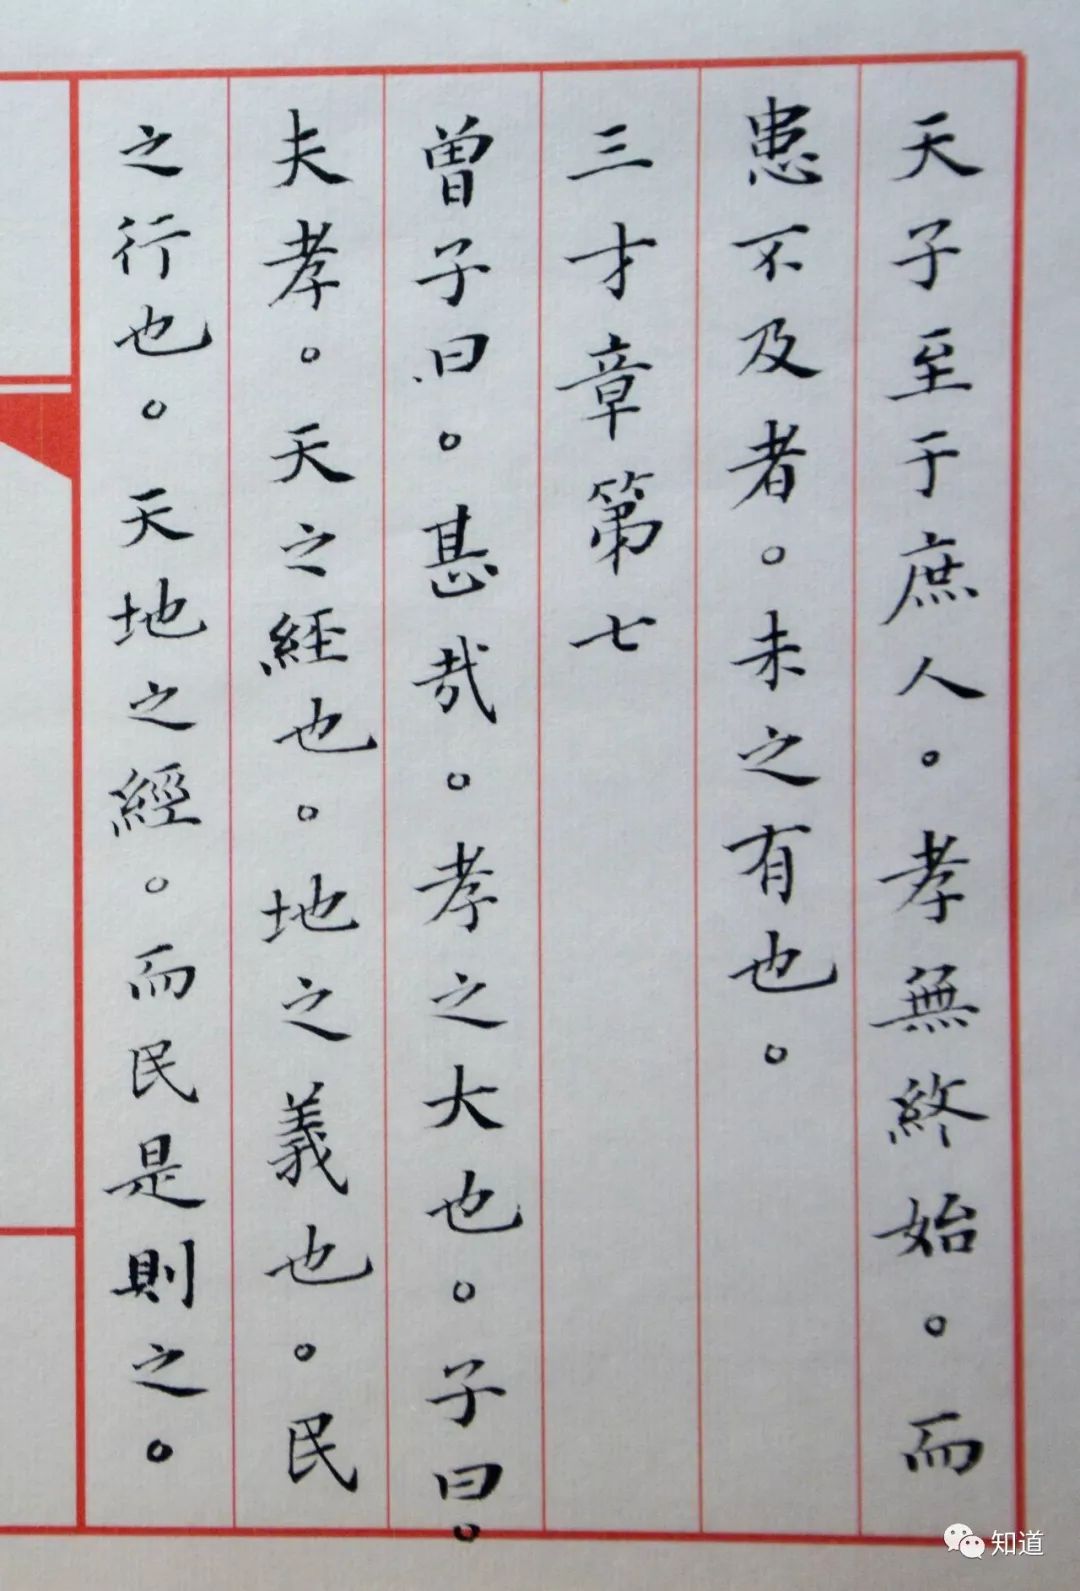 天子至于庶人。孝無終始。而
患不及者。未之有也。
三才章第七
曽子曰。甚哉。孝之大也。子曰。
夫孝。天之經也。地之義也。民
之行也。天地之經。而民是則之。
知道